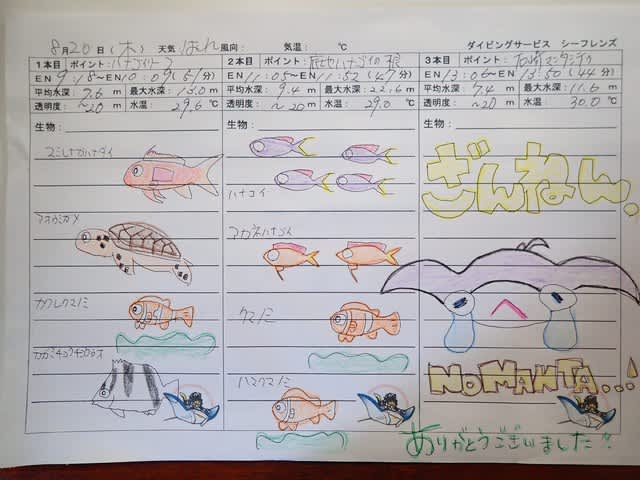 8月20日(木) 天気 はれ 風向: 気温: ℃ ダイビングサービス シーフレンズ
1本目 ポイント:ハナゴイリーフ
EN 9:18~EN 10:09(51分)
平均水深:9.6m 最大水深:13.0m
透明度:~20m 水温:29.6℃
生物:
スミレナガハナダイ
アオウミガメ
カクレクマノミ
カガミチョウチョウウオ
2本目 ポイント: ハナゴイの根
EN 11:05~EN 11:52(47分)
平均水深:9.4m 最大水深:22.6m
透明度:~20m 水温:29.0℃
生物:
ハナゴイ
アカネハナゴイ
クマノミ
ハマクマノミ
3本目 ポイント:石崎マンタ
EN 13:06~EN 13:50(44分)
平均水深:7.4m 最大水深:11.6m
透明度:~20m 水温:30.0℃
生物:
ざんねん.
NO MANTA...!
ありがとうございました!!